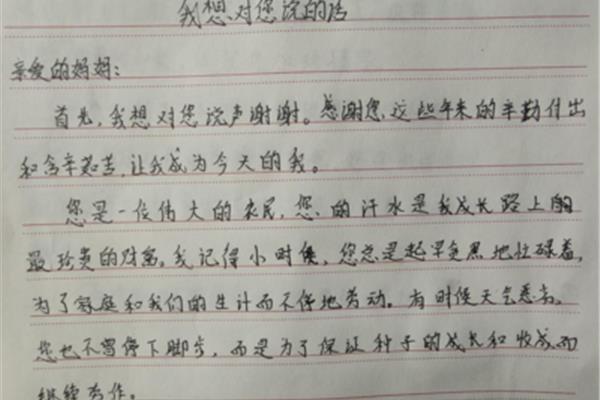 我想对您说的话
亲爱的妈妈:
首先,我想对您说声谢谢。感谢您这些年来的辛勤付出
和含辛茹苦,让我成为今天的我。
您是一位伟大的农民,您的汗水是我成长路上的
最珍贵的财富。我记得小时候,您总是起早贪黑地忙碌着,
为了家庭和我们的生计而不停地劳动。有时候天气恶劣,
您也不曾停下脚步,而是为了保证种子的成长和收成而
继续劳作。